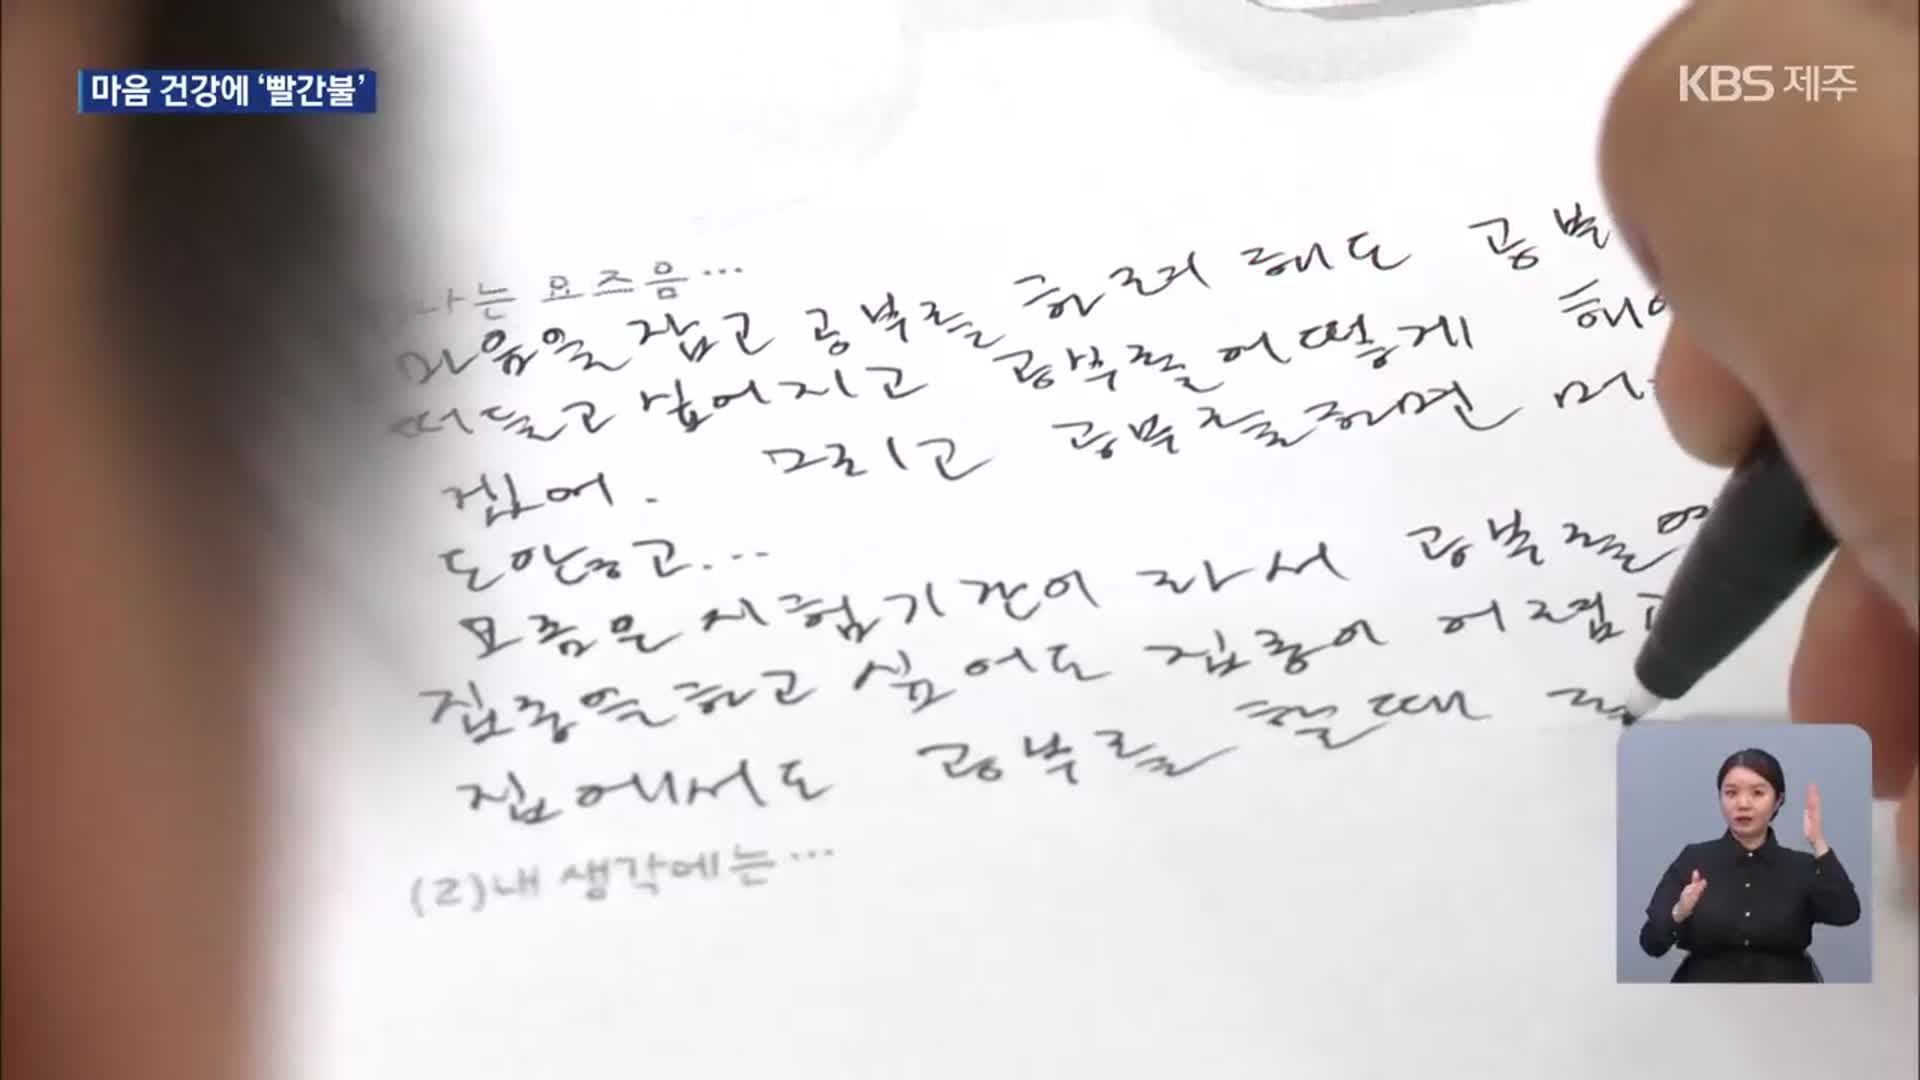 마음 건강에 ‘빨간불’
KBS 제주
나는 요즈음…
마음을 잡고 공부를 하려 해도 공부
떠들고 싶어지고 공부를 어떻게 해야
겠어. 그리고 공부를하면 머
도안되고...
요즘은 시험기간이 라서 공부를
집중을하고 싶어도 집중이 어렵고
집에서도 공부를 할때
(2)내 생각에는…